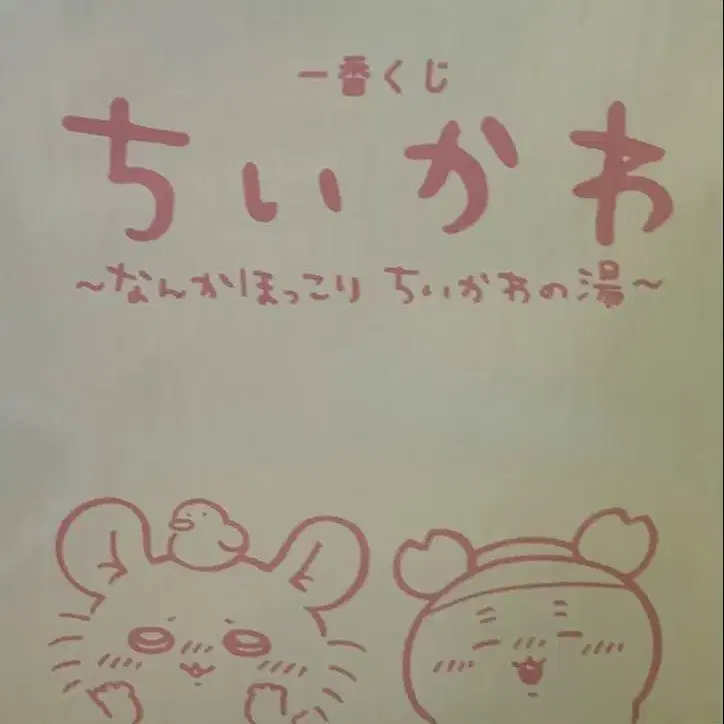 一番くじ
ちいかわ
~なんかほっこり ちいかわの湯~